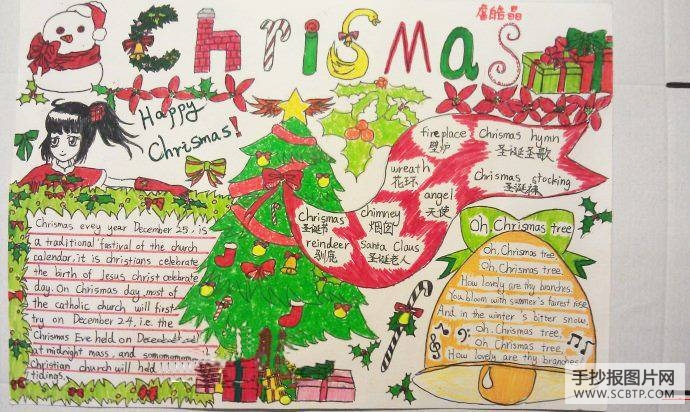 Chrismas
Happy
Chrismas!
fireplace
壁炉
Chrismas hymn
圣诞圣歌
wreath
花环
Chrismas stocking
圣诞袜
angel
天使
Chrismas
圣诞节
chimney
烟囱
reindeer
驯鹿
Santa Claus
圣诞老人
Chrismas evey year December 25, is
a traditional festival of the church
calendar, it is christians celebrate
the birth of Jesus christ celebrate
day. On Chrismas day, most of
the catholic church will first
try on December 24, i.e. the
Chrismas Eve held on
at midnight mass, and
Christian church will held
tidings,
Oh, Chrismas tree
Oh, Chrismas tree
Oh, Chrismas tree,
How lovely are thy branches.
You bloom with summer's fairest rise,
And in the winter's bitter snow,
Oh, Chrismas tree,
Oh Chrismas tree,
How lovely are thy branches!
手抄报图片网
WWW.SCBTP.COM